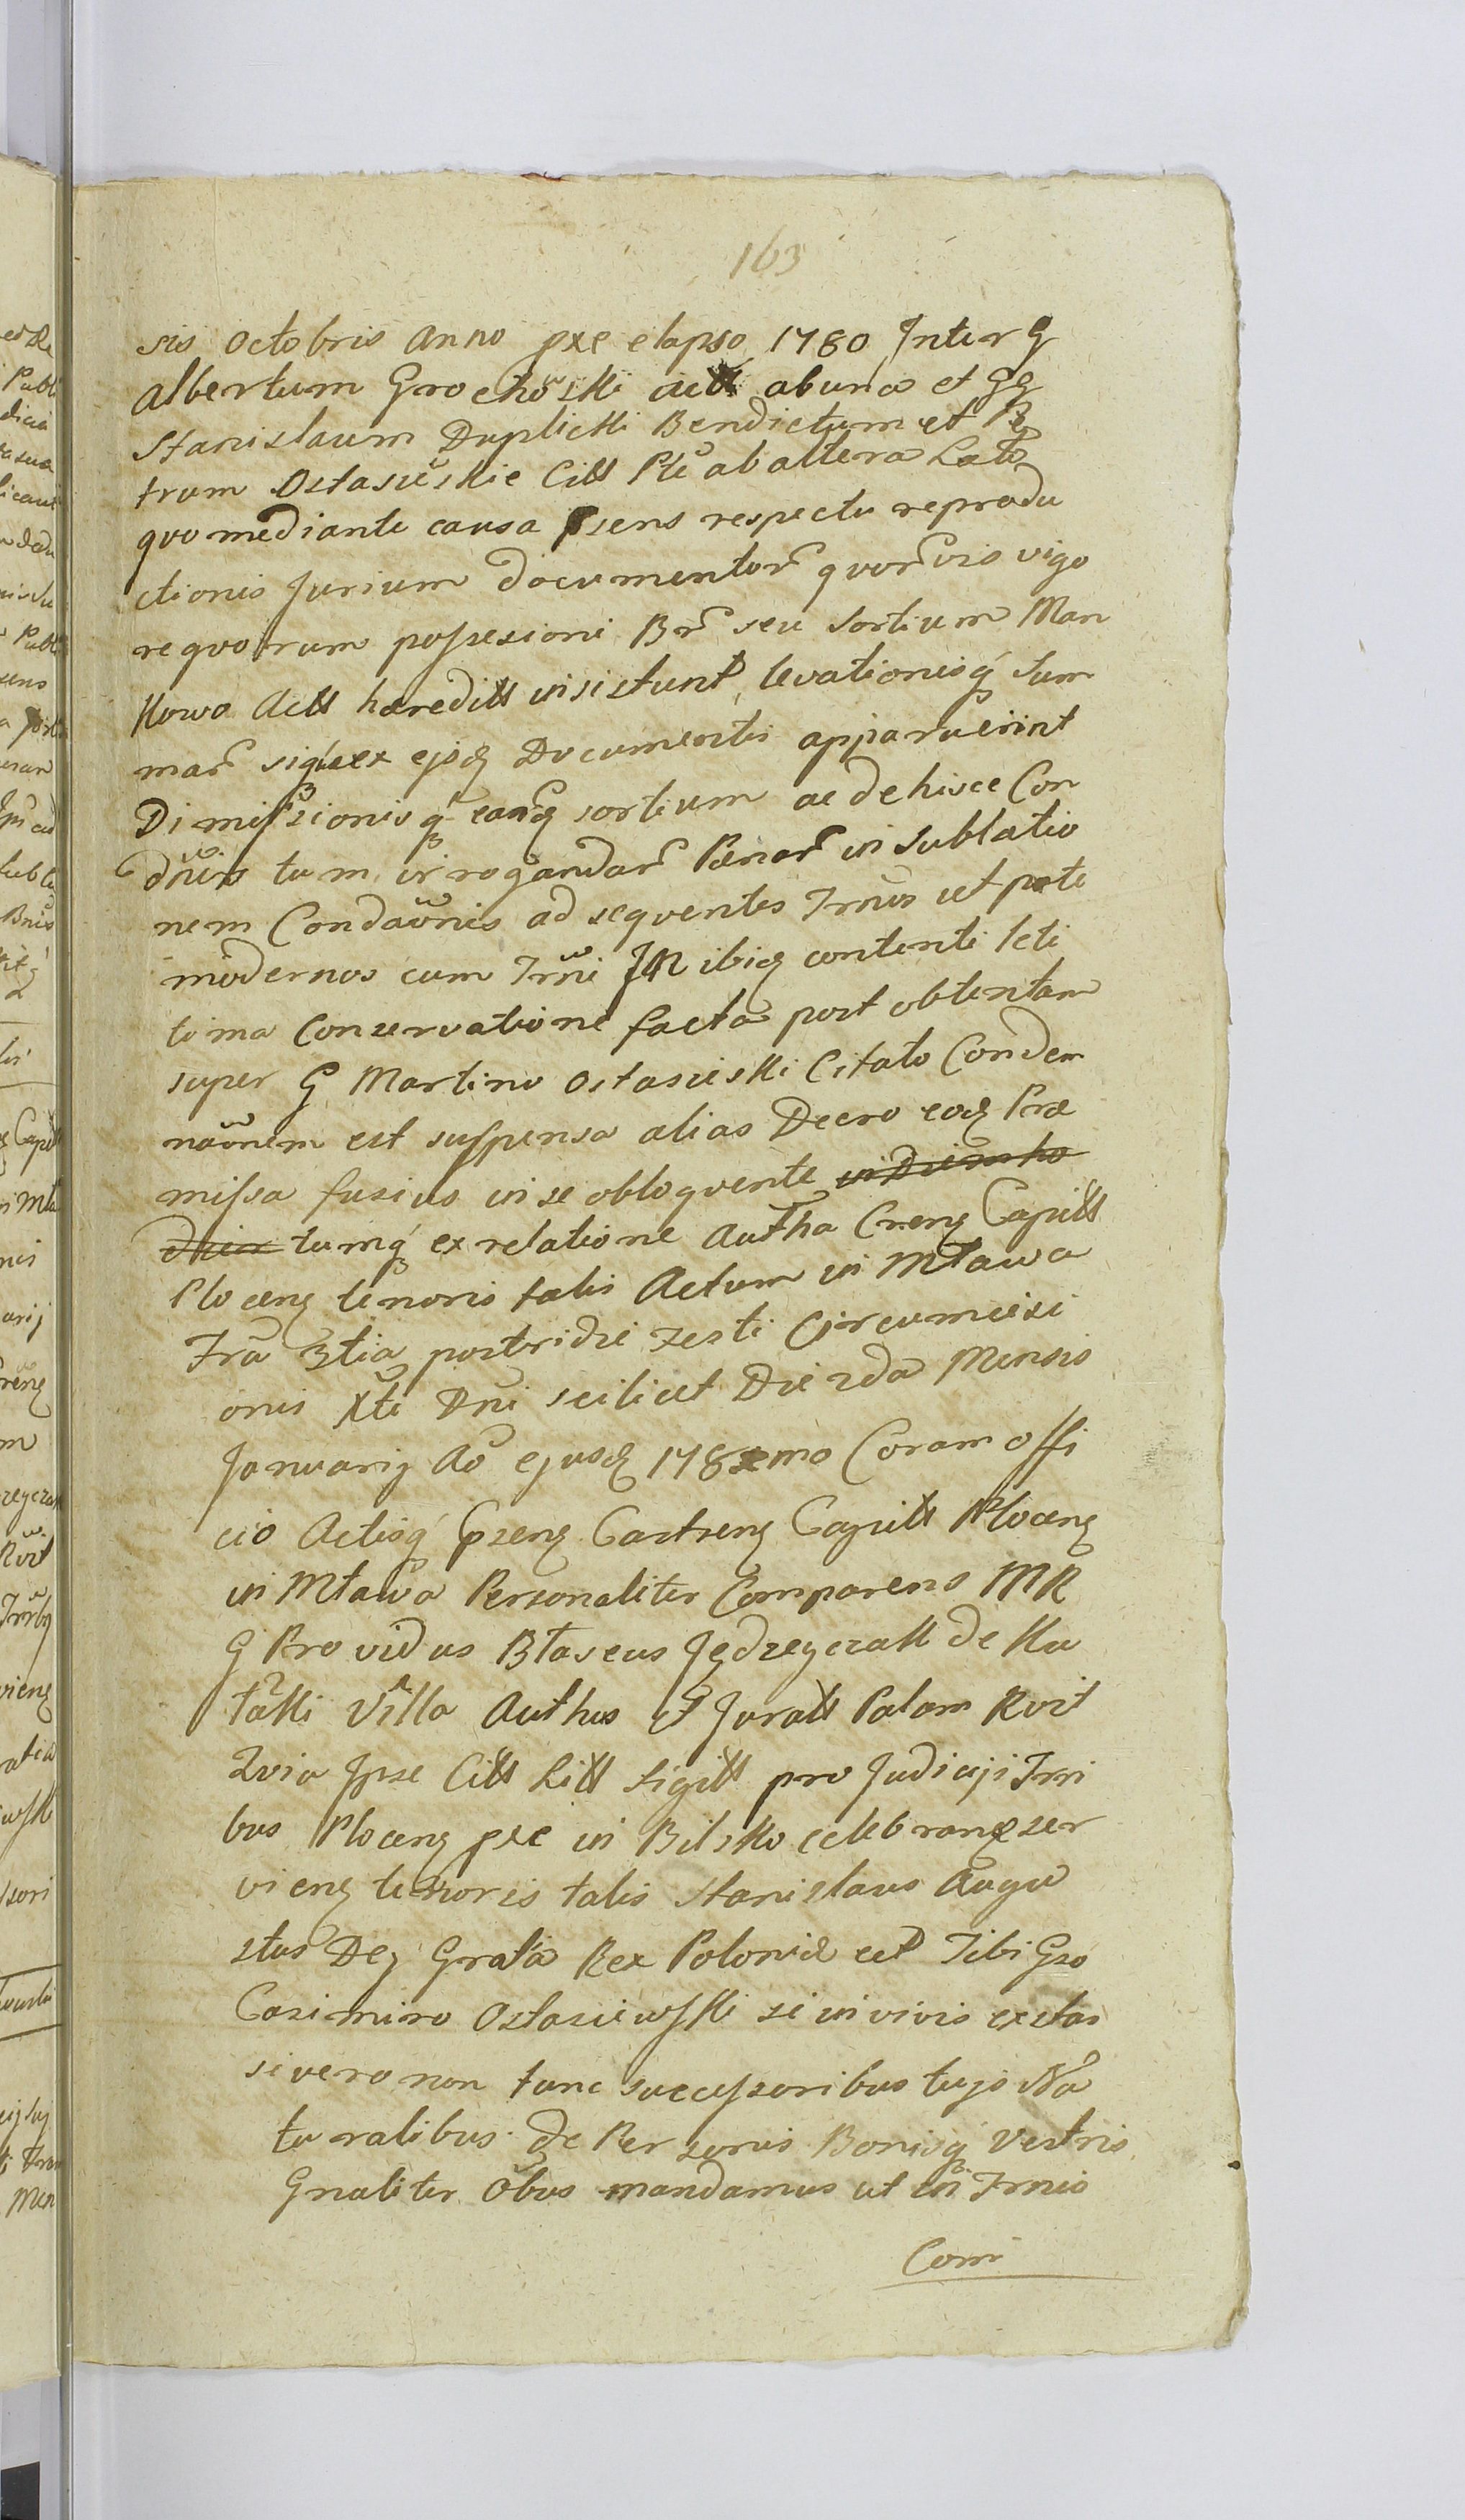 163
sis Octobris Anno pxe elapso 1780 Inter G
Albertum Grochoski act ab una et GG
Stanislaum Duplicki Bendictum et Pe
trum Ostasieskie Citt Pte ab altera Lato
quo mediante causa psens respectu reprodu
ctionis Jurium documentor quorvis vigo
re quorum possesioni Br seu Sortium Man
kowo Actt hæreditt insistunt, levationisq Sum
mar siquæ ex ejsd Documentis apparuerint
Dimissionisq earund sortium ac de hisce Con
dnis tum irrogandar Pænar in Sublatio
nem Condaonis ad seqventes Trnos ut pote
modernos cum Trni JR ibid contenti leti
tima Conservatione facta post obtentam
super G Martino Ostasieski Citato Condem
naonem est suspensa alias Decro eod Præ
missa fusius in se obloqvente
tumq ex relatione Autha Creng Capitt
Ploceng tenoris talis Actum in Mława
Fra 3tia postridie Festi Circumcisi
onis Xti Dni scilicet Die 2da Mensis
Januarij Ao ejusd 178 mo Coram offi
cio Actisq pzeng Castreng Capitt Ploceng
in Mława Personaliter Comparens MR
G Providus Błaseus Jędrzeyczak de Ku
łaki Villa Authus et Juratt Palam Rvit
Qvia Ipse Citt Litt Sigitt pro Judiciji Trni
bus Ploceng pxe in Bilsko celebrang ser
vieng tenoris talis Stanislaus Augu
stus Dej Grata Rex Poloniæ ect Tibi Gso
Casimiro Ostasiewski si in vivis extas
si vero non tunc successoribus tujs Na
turalibus de Personis Bonisq Vestris
Gnaliter Obus mandamus ut in Trnis
Coni